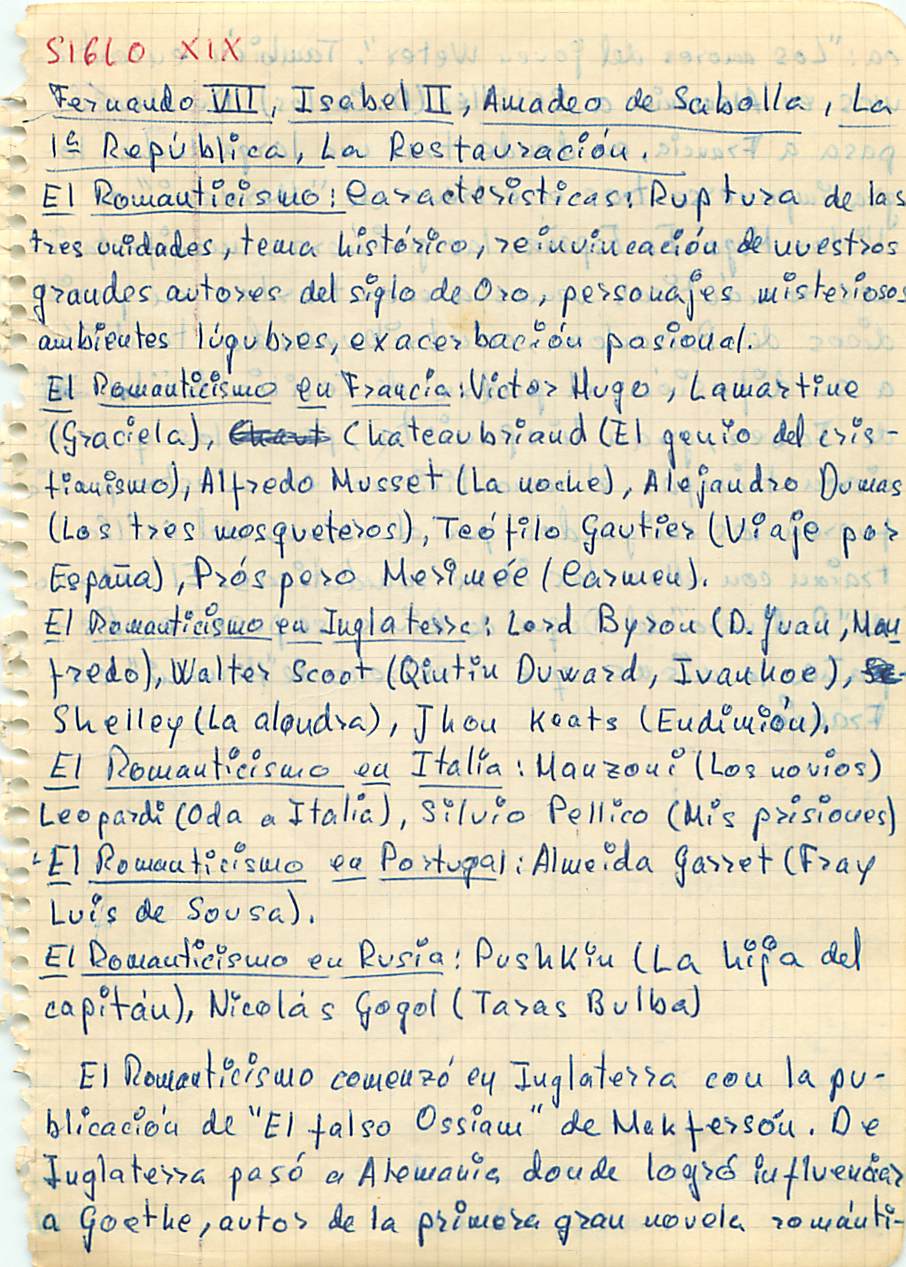 SIGLO XIX
Fernando VII, Isabel II, Amadeo de Sabolla, La
1ª República, La Restauración.
El Romanticismo: Características: Ruptura de las
tres unidades, tema histórico, reinvincación de nuestros
grandes autores del siglo de Oro, personajes misteriosos
ambientes lúgubres, exacerbación pasional.
El Romanticismo en Francia: Victor Hugo, Lamartine
(Graciela), Chateaubriand (El genio del cris-
tianismo), Alfredo Musset (La noche), Alejandro Dumas
(Los tres mosqueteros), Teófilo Gautier (Viaje por
España), Próspero Merimée (Carmen).
El Romanticismo en Inglaterra: Lord Byron (D. Juan, Man
fredo), Walter Scoot (Qintin Duward, Ivanhoe),
Shelley (La alondra), Jhon Keats (Endimión).
El Romanticismo en Italia: Manzoni (Los novios)
Leopardi (Oda a Italia), Silvio Pellico (Mis prisiones)
El Romanticismo en Portugal: Almeida Garret (Fray
Luis de Sousa).
El Romanticismo en Rusia: Pushkin (La hija del
capitán), Nicolás Gogol (Taras Bulba)
El Romanticismo comenzó en Inglaterra con la pu-
blicación de "El falso Ossiam" de Makferson. De
Inglaterra pasó a Alemania donde logró influenciar
a Goethe, autor de la primera gran novela románti-